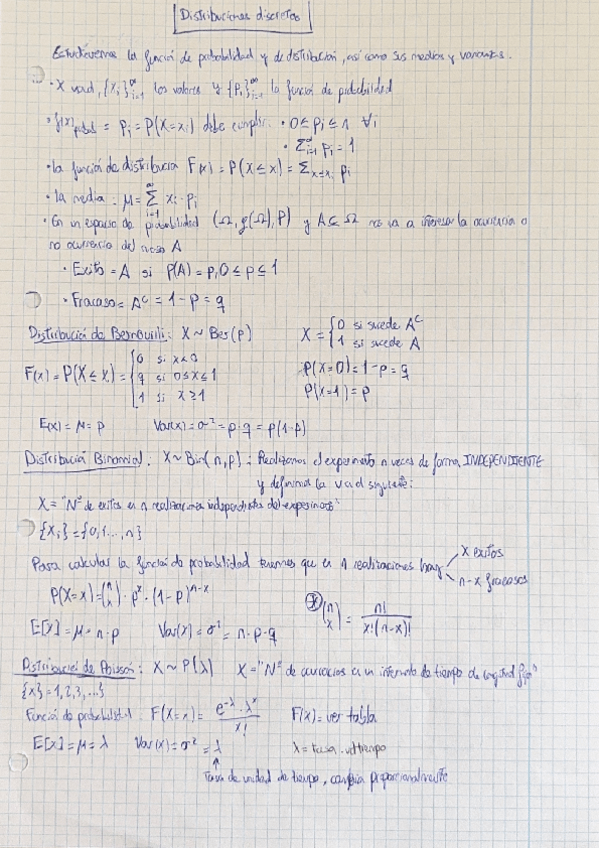 Distribuciones discretas
Estudiaremos la función de probabilidad y de distribución, así como sus medias y varianzas.
· X va.d, {Xi}∞i=1 los valores y {Pi}∞i=1 la función de probabilidad
· f(x) = Pi = P(X=xi) debe cumplir: · 0≤pi≤1 ∀i
· Σi=1 pi = 1
· la función de distribución F(x) = P(X≤x) = Σx≤xi Pi
· la media: μ = Σ∞i=1 xi · pi
· En un espacio de probabilidad (Ω, ℘(Ω), P) y A⊆Ω nos va a interesar la ocurrencia o
no ocurrencia del suceso A
· Exito = A si P(A) = p, 0≤p≤1
· Fracaso = Aᶜ = 1-p = q
Distribución de Bernouilli: X ~ Ber(p) X = {0 si sucede Aᶜ
1 si sucede A
F(x) = P(X≤x) = {0 si x<0
q si 0≤x≤1
1 si x≥1
P(X=0) = 1-p = q
P(X=1) = p
E(x) = μ = p Var(x) = σ² = p·q = p(1-p)
Distribución Binomial. X ~ Bin(n,p): Realizamos el experimento n veces de forma INDEPENDIENTE
y definimos la va.d siguiente:
X = "Nº de exitos en n realizaciones independientes del experimento"
{Xi} = {0,1...,n}
Para calcular la función de probabilidad tenemos que en n realizaciones hay
x exitos
n-x fracasos
P(X=x) = (n x) · pˣ · (1-p)ⁿ⁻ˣ
* (n x) = n! / x!·(n-x)!
E[X] = μ = n·p Var(x) = σ² = n·p·q
Distribución de Poisson: X ~ P(λ) X = "Nº de ocurrencias en un intervalo de tiempo de longitud fija"
{x} = 1,2,3,...}
Función de probabilidad: F(X=x) = e^-λ · λˣ / x! F(x) = ver tabla
E[X] = μ = λ Var(x) = σ² = λ λ = tasa · tiempo
↑
Tasa de unidad de tiempo, cambia proporcionalmente